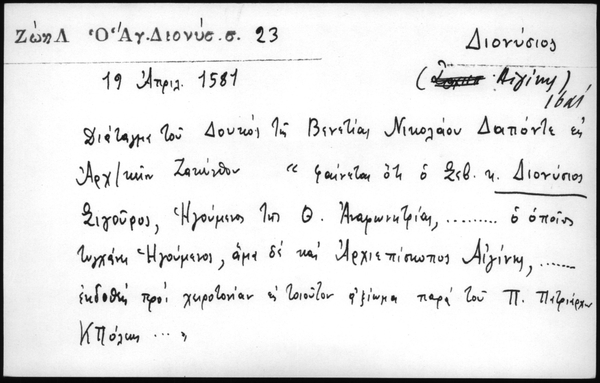 Ζώη Λ Ὁ Ἅγ. Διονύσ. σ. 23
Διονύσιος
19 Ἀπριλ. 1581
( Αἰγίνης)
Διάταγμα τοῦ Δουκός τῆς Βενετίας Νικολάου Δαπόντε εἰς
Ἀρχ/κήν Ζακύνθου " φαίνεται ὅτι ὁ Σεβ. κ. Διονύσιος
Σιγοῦρος, Ἡγούμενος τῆς Θ. Ἀναφωνητρίας, ......... ὁ ὁποῖος
τυγχάνει Ἡγούμενος, ἅμα δέ καί Ἀρχιεπίσκοπος Αἰγίνης, .......
ἐκδοθῇ πρός χειροτονίαν εἰς τοιοῦτον ἀξίωμα παρά τοῦ Π. Πατριάρχου
ΚΠόλεως ... "